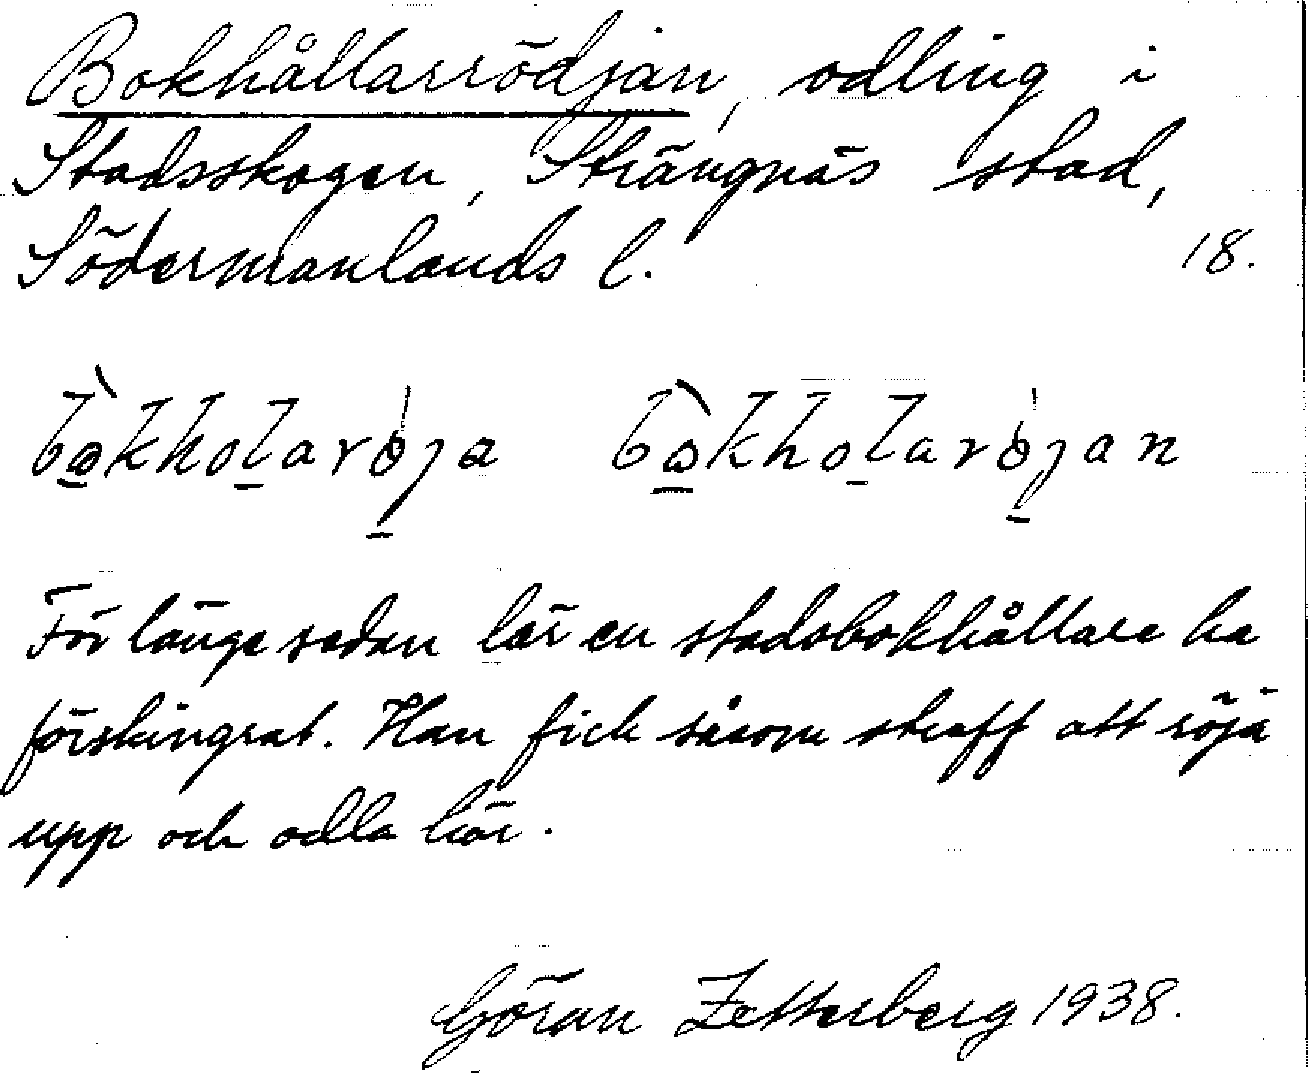 Bokhållarrödjan, odling i
Stadsskogen, Strängnäs stad,
Södermanlands l. 18.
bòkholaròja bòkholaròjan
För länge sedan lär en stadsbokhållare ha
förskingrat. Han fick såsom straff att röja
upp och odla här.
Göran Zetterberg 1938.